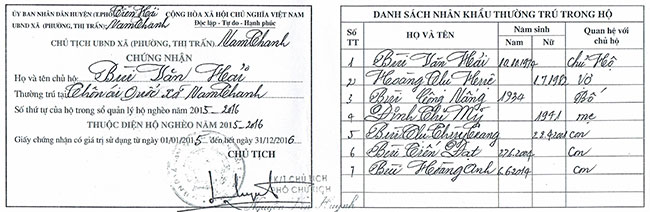 ỦY BAN NHÂN DÂN HUYỆN (T.P) Tiền Hải
UBND XÃ (PHƯỜNG, THỊ TRẤN) Nam Thanh
CỘNG HÒA XÃ HỘI CHỦ NGHĨA VIỆT NAM
Độc lập - Tự do - Hạnh phúc
CHỦ TỊCH UBND XÃ (PHƯỜNG, THỊ TRẤN) Nam Thanh
CHỨNG NHẬN
Họ và tên chủ hộ: Bùi Văn Hải
Thường trú tại: Thôn ái Quốc xã Nam Thanh
Số thứ tự của hộ trong sổ quản lý hộ nghèo 2015-2016
THUỘC DIỆN HỘ NGHÈO NĂM 2015-2016
Giấy chứng nhận có giá trị sử dụng từ ngày 01/01/2015 đến hết ngày 31/12/2016
CHỦ TỊCH
KT CHỦ TỊCH
PHÓ CHỦ TỊCH
DANH SÁCH NHÂN KHẨU THƯỜNG TRÚ TRONG HỘ
Số TT HỌ VÀ TÊN Năm sinh Nam Nữ Quan hệ với chủ hộ
1 Bùi Văn Hải 10.10.1974 chủ Hộ
2 Hoàng Thị Vợ
3 Bùi Công 1934 Bố
4 Đinh Thị Mỹ 1941 mẹ
5 Bùi Thị con
6 Bùi Tiến Đạt 27.6.2014 con
7 Bùi Hoàng Anh 6.6.2014 con